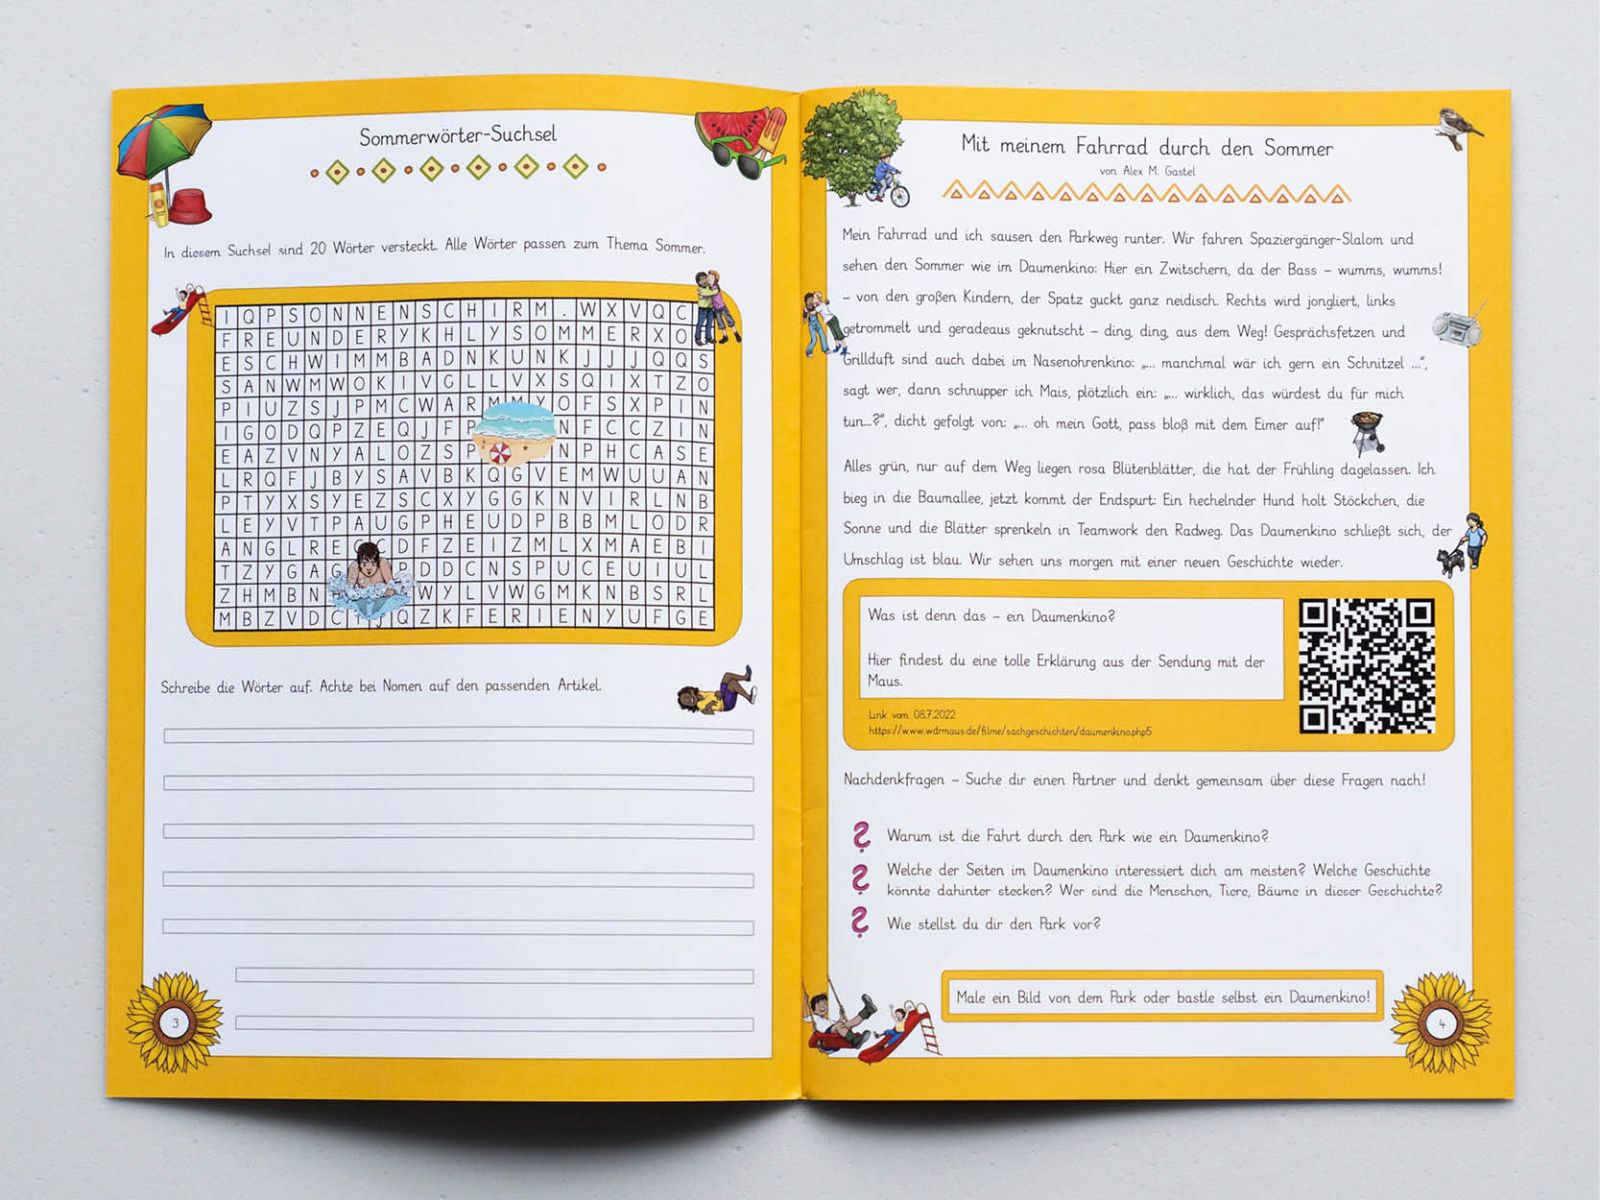 Sommerwörter-Suchsel
In diesem Suchsel sind 20 Wörter versteckt. Alle Wörter passen zum Thema Sommer.
I Q P S O N N E N S C H I R M . W X V Q C
F R E U N D E R Y K H L Y S O M M E R X O
E S C H W I M M B A D N K U N K J J J Q Q S
S A N W M W O K I V G L L V X S Q I X T Z O
P I U Z S J P M C W A R M M Y O F S X P I N
I G O D Q P Z E Q J F P N F C C Z I N
E A Z V N Y A L O Z S P N P H C A S E
L R Q F J B Y S A V B K Q G V E M W U U A N
P T Y X S Y E Z S C X Y G G K N V I R L N B
L E Y V T P A U G P H E U D P B B M L O D R
A N G L R E D F Z E I Z M L X M A E B I
T Z Y G A G P D D C N S P U C E U I U L
Z H M B N W Y L V W G M K N B S R L
M B Z V D C J Q Z K F E R I E N Y U F G E
Schreibe die Wörter auf. Achte bei Nomen auf den passenden Artikel.
3
Mit meinem Fahrrad durch den Sommer
von Alex M. Gastel
Mein Fahrrad und ich sausen den Parkweg runter. Wir fahren Spaziergänger-Slalom und
sehen den Sommer wie im Daumenkino: Hier ein Zwitschern, da der Bass – wumms, wumms!
– von den großen Kindern, der Spatz guckt ganz neidisch. Rechts wird jongliert, links
getrommelt und geradeaus geknutscht – ding, ding, aus dem Weg! Gesprächsfetzen und
Grillduft sind auch dabei im Nasenohrenkino: „... manchmal wär ich gern ein Schnitzel ...“,
sagt wer, dann schnupper ich Mais, plötzlich ein: „... wirklich, das würdest du für mich
tun...?“, dicht gefolgt von: „... oh mein Gott, pass bloß mit dem Eimer auf!“
Alles grün, nur auf dem Weg liegen rosa Blütenblätter, die hat der Frühling dagelassen. Ich
bieg in die Baumallee, jetzt kommt der Endspurt: Ein hechelnder Hund holt Stöckchen, die
Sonne und die Blätter sprenkeln in Teamwork den Radweg. Das Daumenkino schließt sich, der
Umschlag ist blau. Wir sehen uns morgen mit einer neuen Geschichte wieder.
Was ist denn das – ein Daumenkino?
Hier findest du eine tolle Erklärung aus der Sendung mit der
Maus.
Link vom 08.7.2022
https://www.wdrmaus.de/filme/sachgeschichten/daumenkino.php5
Nachdenkfragen – Suche dir einen Partner und denkt gemeinsam über diese Fragen nach!
Warum ist die Fahrt durch den Park wie ein Daumenkino?
Welche der Seiten im Daumenkino interessiert dich am meisten? Welche Geschichte
könnte dahinter stecken? Wer sind die Menschen, Tiere, Bäume in dieser Geschichte?
Wie stellst du dir den Park vor?
Male ein Bild von dem Park oder bastle selbst ein Daumenkino!
4